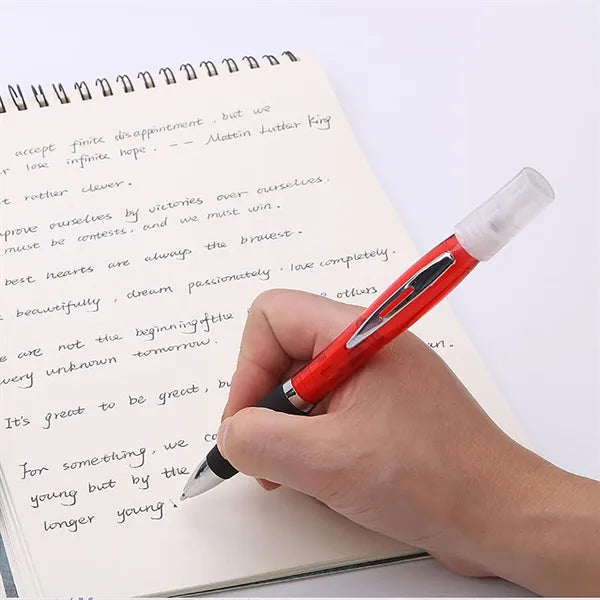 accept finite disappointment, but we
lose infinite hope. -- Mattin Lutter King
rather clever.
ourselves by victories over ourselves.
must be contests, and we must win.
best hearts are always the bravest.
beautifully, dream passionately, love completely.
are not the beginning of the others
very unknown tomorrow.
It's great to be great, but an.
For something, we
young but by the
longer young.